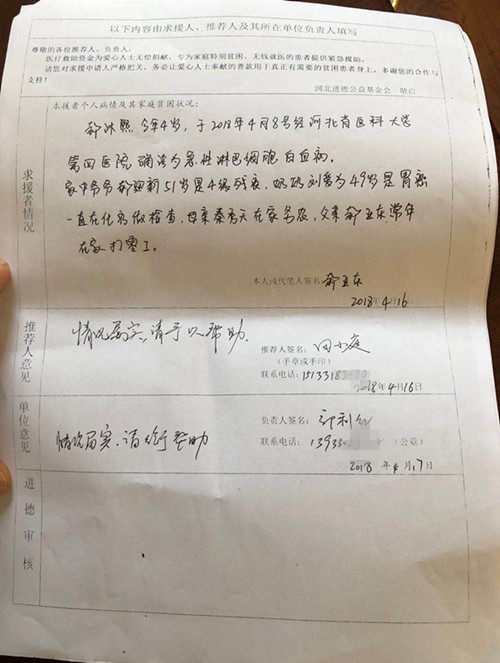 以下内容由求援人、推荐人及其所在单位负责人填写
尊敬的各位推荐人、负责人:
医疗救助资金为爱心人士无偿捐献,专为家庭特别贫困、无钱就医的患者提供紧急援助。
请您对求援申请人严格把关,务必让爱心人士奉献的善款用于真正有需要的贫困患者身上,多谢您的合作与
支持!
河北进德公益基金会 敬启
求援者情况
求援者个人病情及其家庭贫困状况:
郗沐熙 今年4岁,于2018年4月8号经河北省医科大学
第四医院确诊为急性淋巴细胞白血病。
家中爷爷郗迎新51岁是4级残疾,奶奶刘爱为49岁是胃癌
一直在化疗做检查,母亲秦秀天在家务农,父亲郗亚东常年
在家打零工。
本人或代笔人签名 郗亚东
2018年4月16
推荐人意见
情况属实,请予以帮助.
推荐人签名:
(手章或手印)
联系电话:15133183
2018年4月16日
单位意见
情况属实,请给予帮助
负责人签名:
联系电话:13933 (公章)
2018年4月17日
进德审核